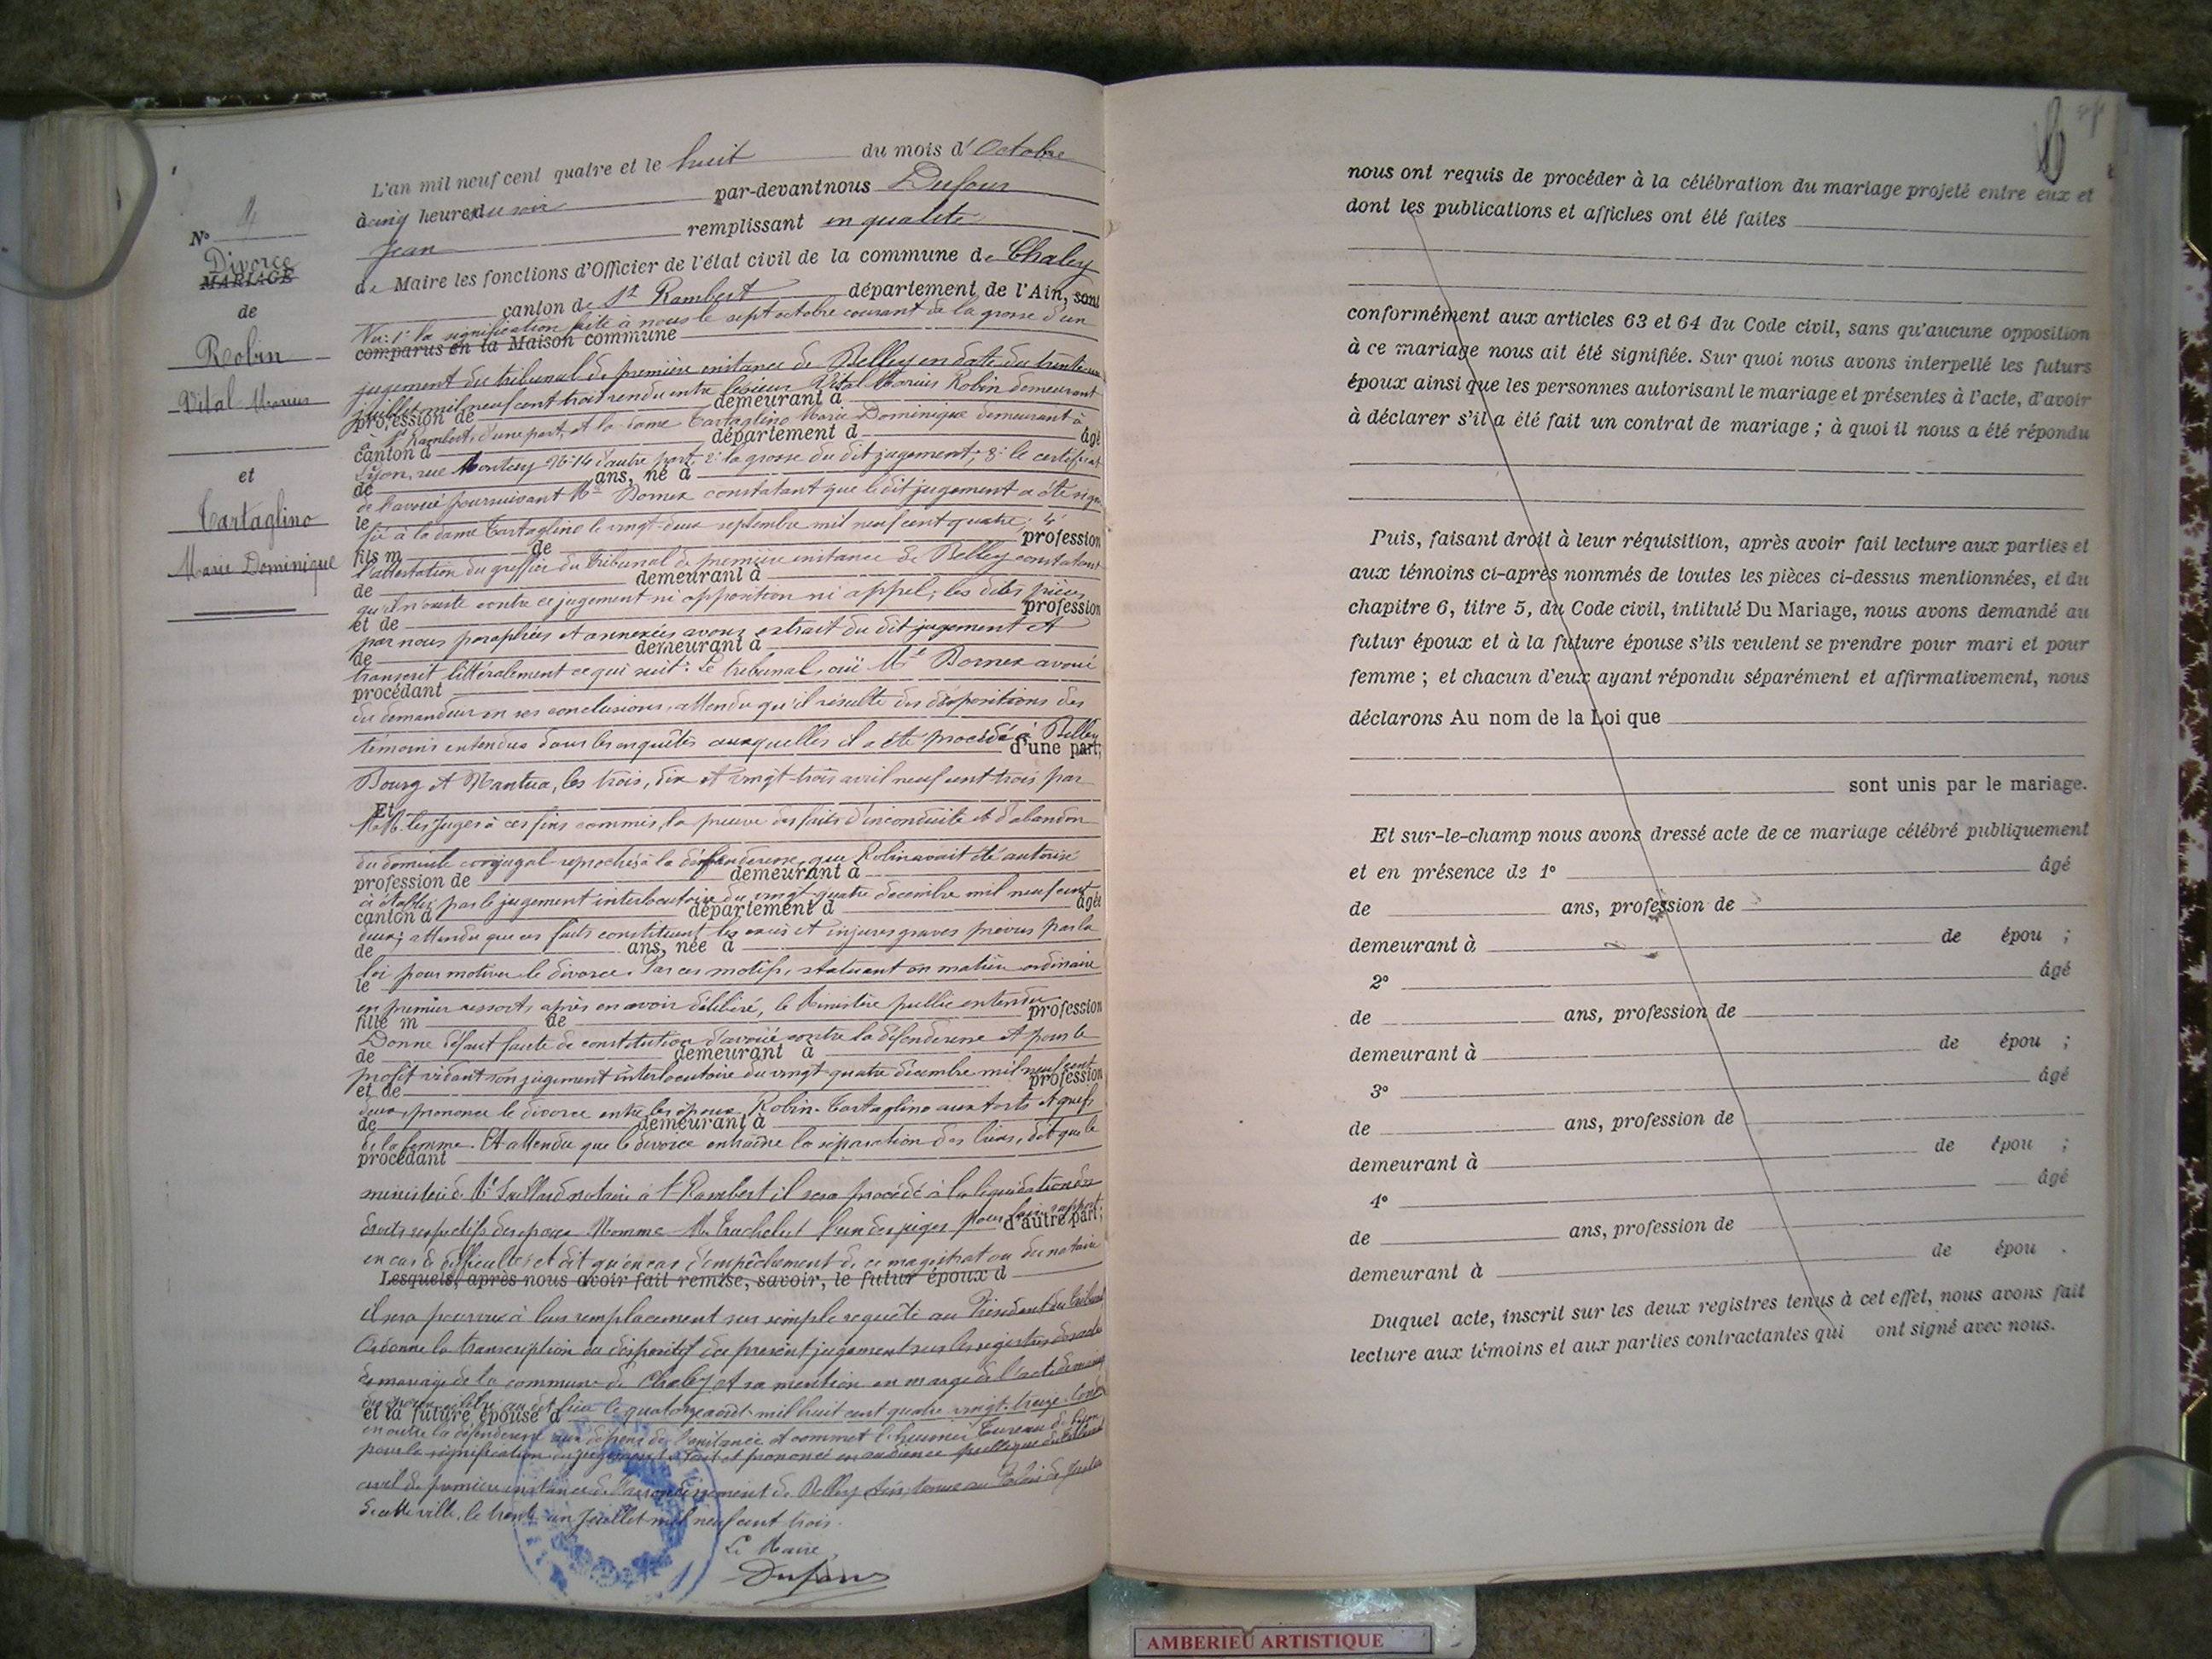 L'an mil neuf cent quatre et le huit du mois d'Octobre
à cinq heures du soir par-devant nous Dufour
Jean remplissant en qualité
de Maire les fonctions d'Officier de l'état civil de la commune de Chaley
canton de St Rambert département de l'Ain, sont
Vu: 1° la signification faite à nous le sept octobre courant de la grosse d'un
comparus en la Maison commune
jugement du tribunal de première instance de Belley en date du trente-un
juillet mil neuf cent trois rendu entre le sieur Vital Marius Robin demeurant
profession de demeurant à
à St Rambert, d'une part, et la dame Tartaglino Marie Dominique demeurant à
canton d département d âgé
Lyon, rue N° 14 d'autre part; 2° la grosse du dit jugement; 3° le certificat
de ans, né à
de l'avoué poursuivant Me Bornex constatant que le dit jugement a été signi
le
fié à la dame Tartaglino le vingt-deux septembre mil neuf cent quatre; 4°
fils m de profession
l'attestation du greffier du Tribunal de première instance de Belley constatant
de demeurant à
qu'il n'existe contre ce jugement ni opposition ni appel; les dites pièces
et de profession
par nous paraphées et annexées avons extrait du dit jugement et
de demeurant à
transcrit littéralement ce qui suit: Le tribunal, ouï Me Bornex avoué
procédant
du demandeur en ses conclusions, attendu qu'il résulte des dépositions des
témoins entendus dans les enquêtes auxquelles il a été procédé à Belley
d'une part;
Bourg et Nantua, les trois, dix et vingt-trois avril neuf cent trois par
Et
MM. les Juges à ces fins commis, la preuve des faits d'inconduite et d'abandon
du domicile conjugal reprochés à la défenderesse, que Robin avait été autorisé
profession de demeurant à
à établir par le jugement interlocutoire du vingt-quatre décembre mil neuf cent
canton d département d âgée
deux; attendu que ces faits constituent les excès et injures graves prévus par la
de ans, née à
loi pour motiver le divorce. Par ces motifs, statuant en matière ordinaire
le
en premier ressort, après en avoir délibéré, le Ministère public entendu
fille m de profession
Donne défaut faute de constitution d'avoué contre la défenderesse et pour le
de demeurant à
profit vidant son jugement interlocutoire du vingt-quatre décembre mil neuf cent
et de profession
deux, prononce le divorce entre les époux Robin-Tartaglino aux torts et griefs
de demeurant à
de la femme. Et attendu que le divorce entraîne la séparation des biens, dit que le
procédant
ministère de Me notaire à St Rambert il sera procédé à la liquidation des
droits respectifs des époux Nomme M. l'un des juges pour faire rapport
d'autre part;
en cas de difficultés et dit qu'en cas d'empêchement de ce magistrat ou du notaire
Lesquels, après nous avoir fait remise, savoir, le futur époux d
il sera pourvu à leur remplacement sur simple requête au Président du tribunal
Ordonne la transcription du dispositif du présent jugement sur les registres des actes
de mariage de la commune de Chaley et sa mention en marge de l'acte de mariage
des époux célébré au dit lieu le quatorze août mil huit cent quatre vingt-treize. Cond
et la future épouse d
en outre la défenderesse aux dépens de l'instance et commet l'huissier de Lyon
pour la signification du jugement. Fait et prononcé en audience publique du tribunal
civil de première instance de l'arrondissement de Belley tenue au Palais de Justice
de cette ville, le trente un Juillet mil neuf cent trois.
Le Maire
Dufour
N° 4
Divorce
MARIAGE
de
Robin
Vital Marius
et
Tartaglino
Marie Dominique
nous ont requis de procéder à la célébration du mariage projeté entre eux et
dont les publications et affiches ont été faites
conformément aux articles 63 et 64 du Code civil, sans qu'aucune opposition
à ce mariage nous ait été signifiée. Sur quoi nous avons interpellé les futurs
époux ainsi que les personnes autorisant le mariage et présentes à l'acte, d'avoir
à déclarer s'il a été fait un contrat de mariage ; à quoi il nous a été répondu
Puis, faisant droit à leur réquisition, après avoir fait lecture aux parties et
aux témoins ci-après nommés de toutes les pièces ci-dessus mentionnées, et du
chapitre 6, titre 5, du Code civil, intitulé Du Mariage, nous avons demandé au
futur époux et à la future épouse s'ils veulent se prendre pour mari et pour
femme ; et chacun d'eux ayant répondu séparément et affirmativement, nous
déclarons Au nom de la Loi que
sont unis par le mariage.
Et sur-le-champ nous avons dressé acte de ce mariage célébré publiquement
et en présence de 1° âgé
de ans, profession de
demeurant à de épou ;
2° âgé
de ans, profession de
demeurant à de épou ;
3° âgé
de ans, profession de
demeurant à de épou ;
4° âgé
de ans, profession de
demeurant à de épou .
Duquel acte, inscrit sur les deux registres tenus à cet effet, nous avons fait
lecture aux témoins et aux parties contractantes qui ont signé avec nous.
AMBERIEU ARTISTIQUE